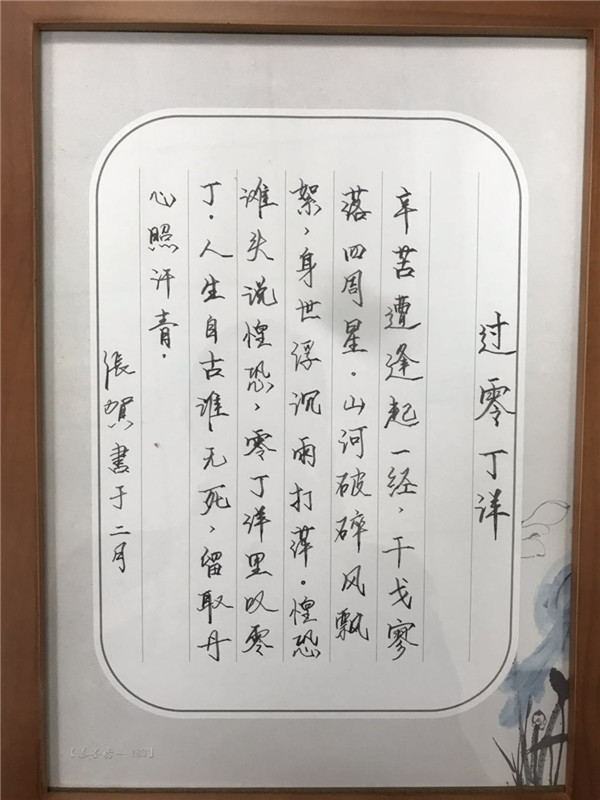 过零丁洋
辛苦遭逢起一经，干戈寥
落四周星。山河破碎风飘
絮，身世浮沉雨打萍。惶恐
滩头说惶恐，零丁洋里叹零
丁。人生自古谁无死，留取丹
心照汗青。
張賀書于二月